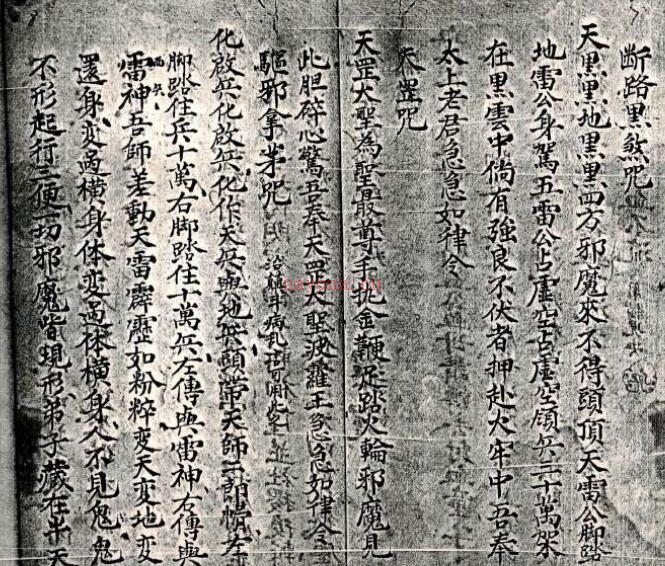 断路黑煞咒
天黑黑地黑黑四方邪魔來不得頭頂天雷公脚踏
地雷公身駕五雷公占虛空占虛空領兵三十萬架
在黑雲中倘有強良不伏者押赴火牢中吾奉
太上老君急急如律令
天罡咒
天罡大聖為聖最尊手执金鞭足踏火輪邪魔見
此胆碎心驚吾奉天罡大聖波羅王急急如律令
驅邪拿茅咒
化啟兵化啟兵化作天兵與地兵頭帶天師二郎情左
脚踏住兵十萬右脚踏住十萬兵左傳與雷神右傳與
雷神吾師差動天雷霹靂如粉粹变天变地变
還身变過橫身体变過体橫身人不見鬼鬼
不形起行三便一切邪魔皆現形弟子藏在出天